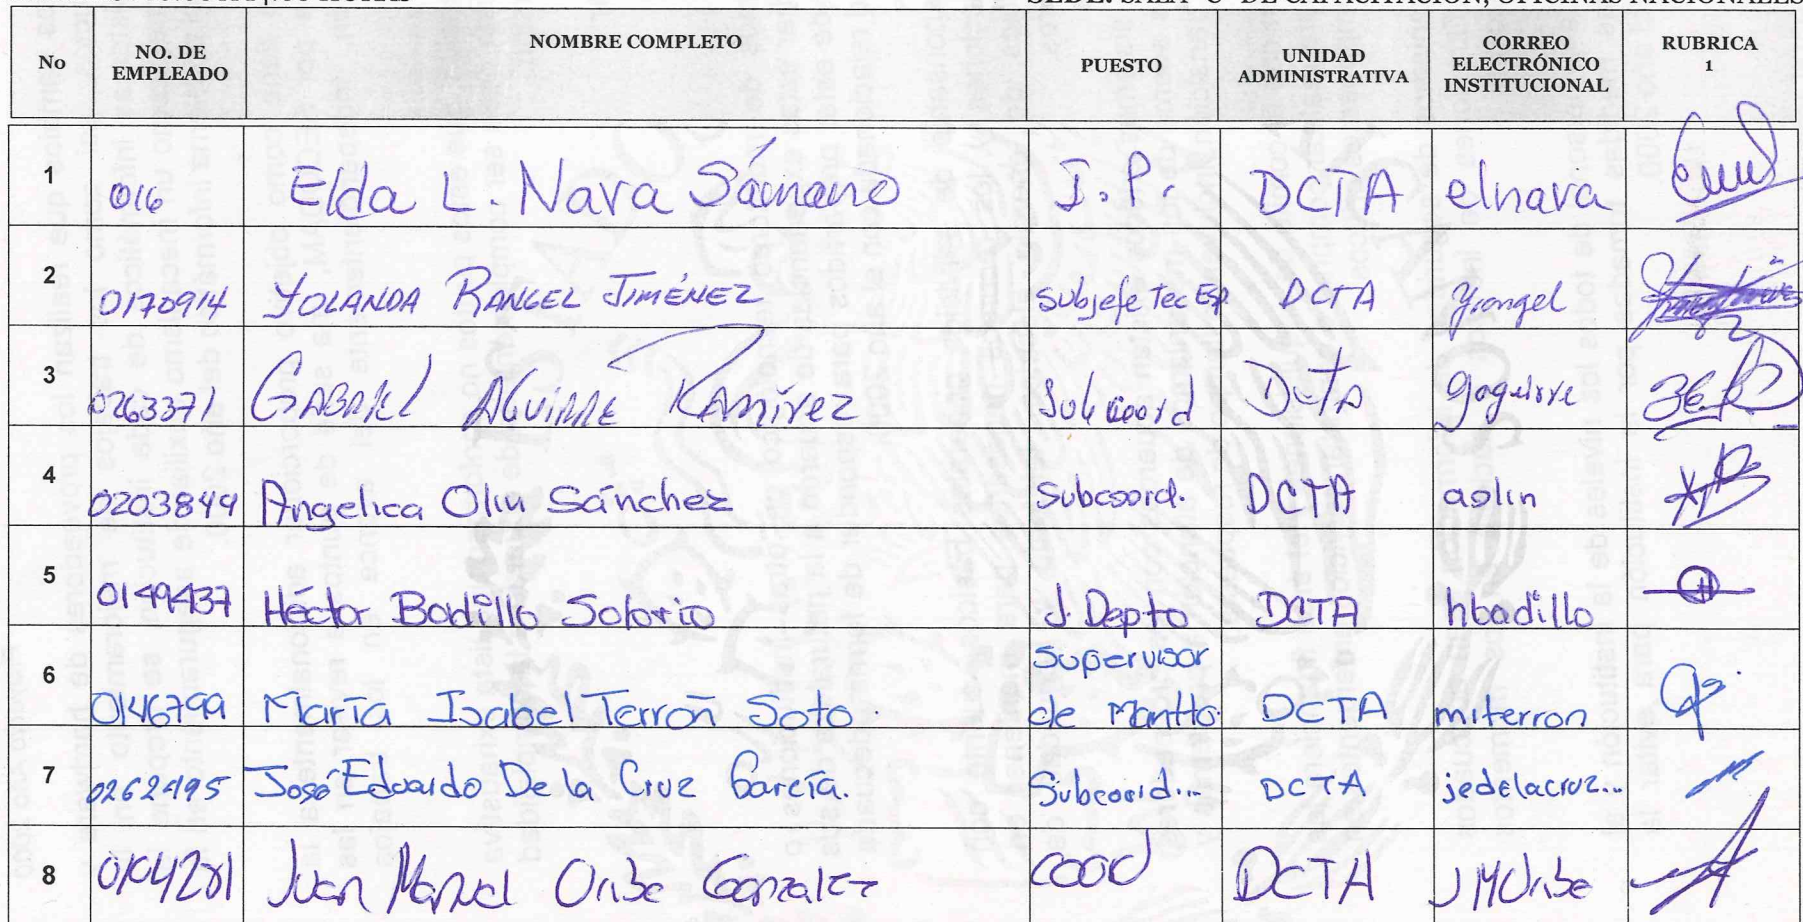 SEDE: SALA "C" DE CAPACITACIÓN, OFICINAS NACIONALES
No NO. DE EMPLEADO NOMBRE COMPLETO PUESTO UNIDAD ADMINISTRATIVA CORREO ELECTRÓNICO INSTITUCIONAL RUBRICA 1
1 016 Elda L. Nava J.P. DCTA elnava
2 0170914 YOLANDA RANGEL JIMÉNEZ Subjefe Tec Esp. DCTA yrangel
3 0263371 GABRIEL AGUIRRE RAMÍREZ Subcoord DCTA gaguirre
4 0203849 Angelica Olin Sánchez Subcoord. DCTA aolin
5 0149437 Héctor Badillo Solorio J. Depto DCTA hbadillo
6 0146799 María Isabel Terrón Soto. Supervisor de Mantto. DCTA miterron
7 0262495 José Eduardo De la Cruz García. Subcoord... DCTA jedelacruz...
8 Juan Manuel Uribe Gonzalez COOD DCTA JMUribe